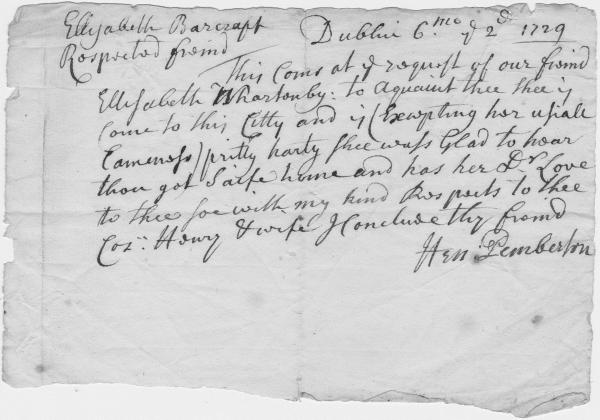 Ellisabeth Barcraft
Dublin 6.mo ye 2d 1729
Respected frend
This Coms at ye request of our frend
Ellisabeth Whartonby: to aquaint thee shee is
Come to this Citty and is (Exsepting her usiall
Lameness) pritty harty shee wass Glad to hear
thou got Saife home and has her Dr Love
to thee soe with my kind Respects to thee
Cosn Henry & wife I Conclude thy frend
Hen: Pemberton